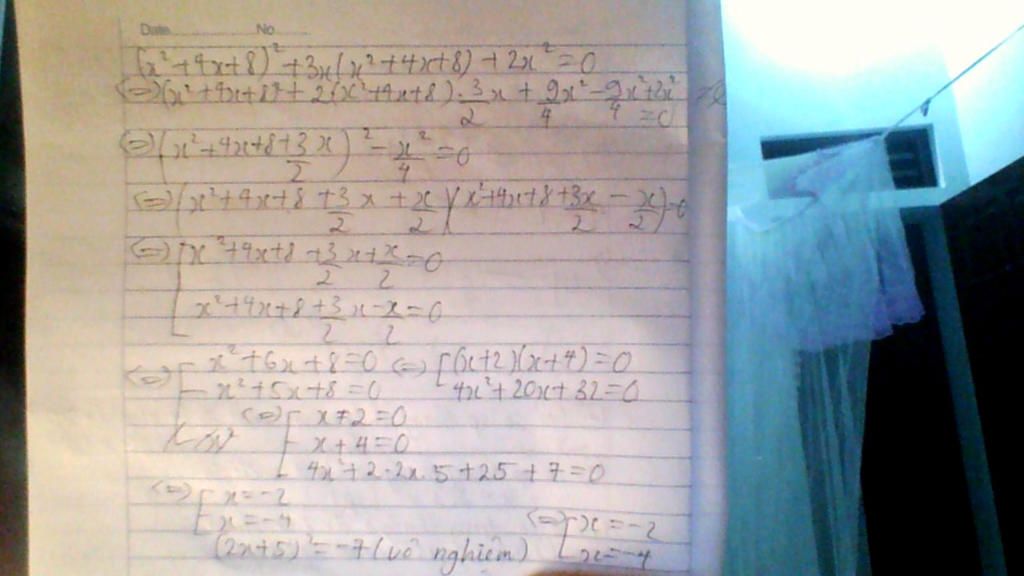 Date No
(x²+4x+8)²+3x(x²+4x+8)+2x²=0
(=)(x²+4x+8)²+2(x²+4x+8).3/2x+9/4x²-9/4x²+2x²=0
(=)(x²+4x+8+3/2x)²-x²/4=0
(=)(x²+4x+8+3/2x+x/2)(x²+4x+8+3x/2-x/2)=0
(=)[x²+4x+8+3/2x+x/2=0
x²+4x+8+3/2x-x/2=0
(=)[x²+6x+8=0 (=)[(x+2)(x+4)=0
x²+5x+8=0 4x²+20x+32=0
(=)[x+2=0
x+4=0
4x²+2.2x.5+25+7=0
(=)[x=-2
x=-4 (=)[x=-2
(2x+5)²=-7(vô nghiệm) x=-4